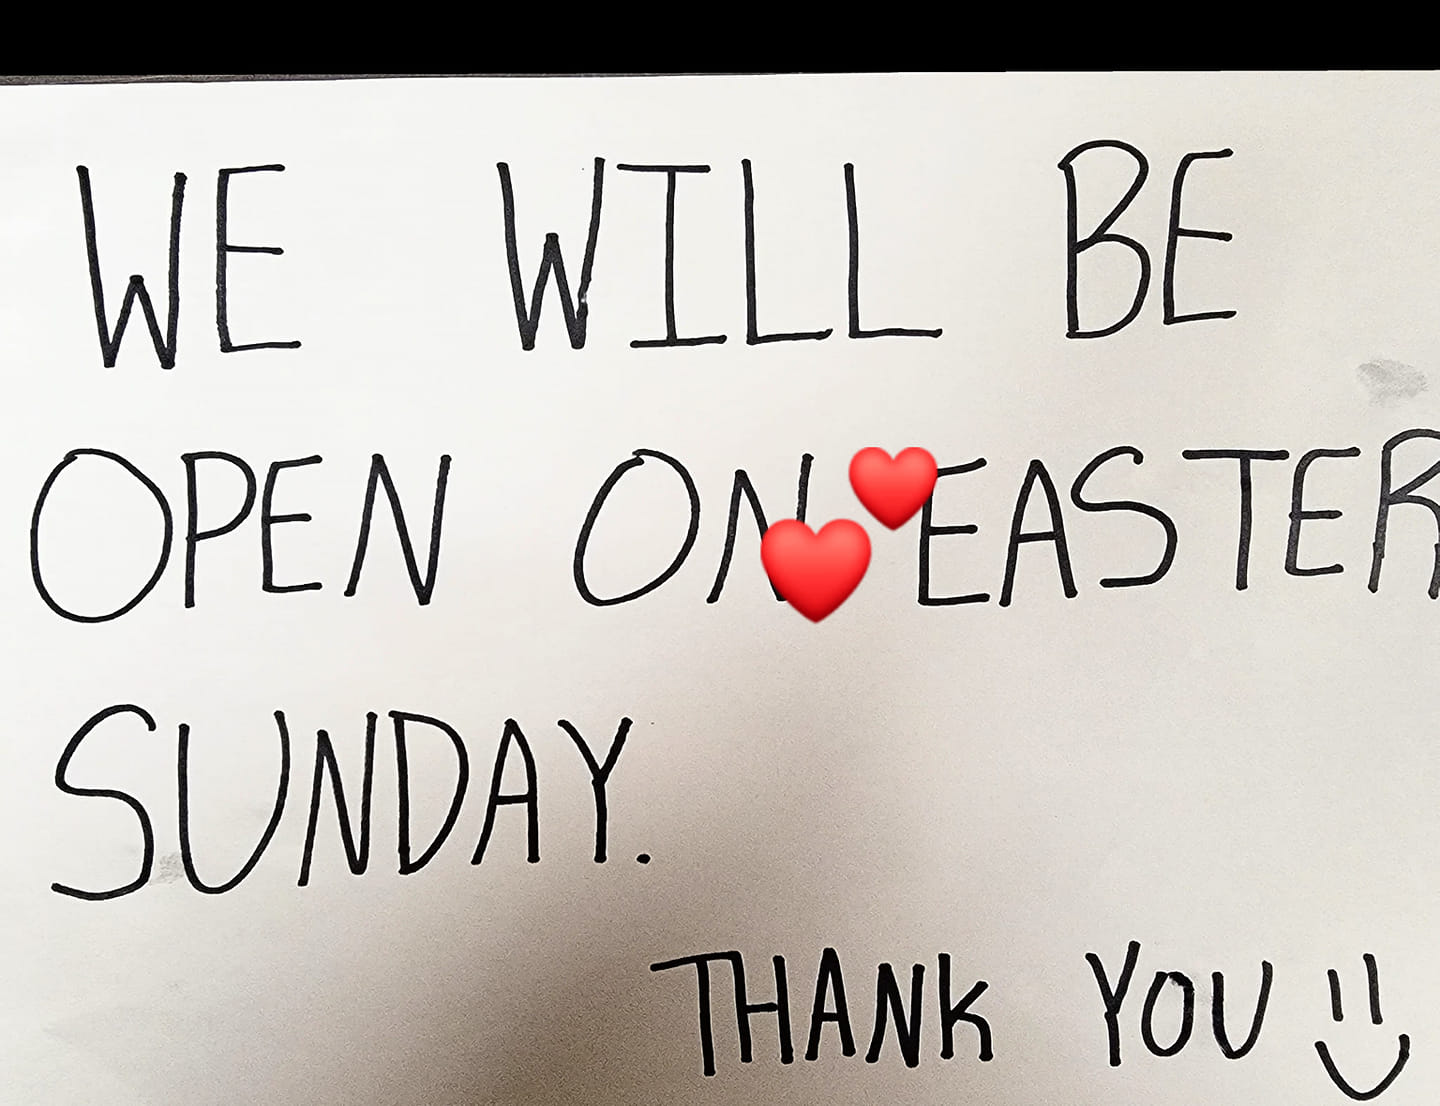 WE WILL BE
OPEN ON EASTER
SUNDAY.
THANK YOU